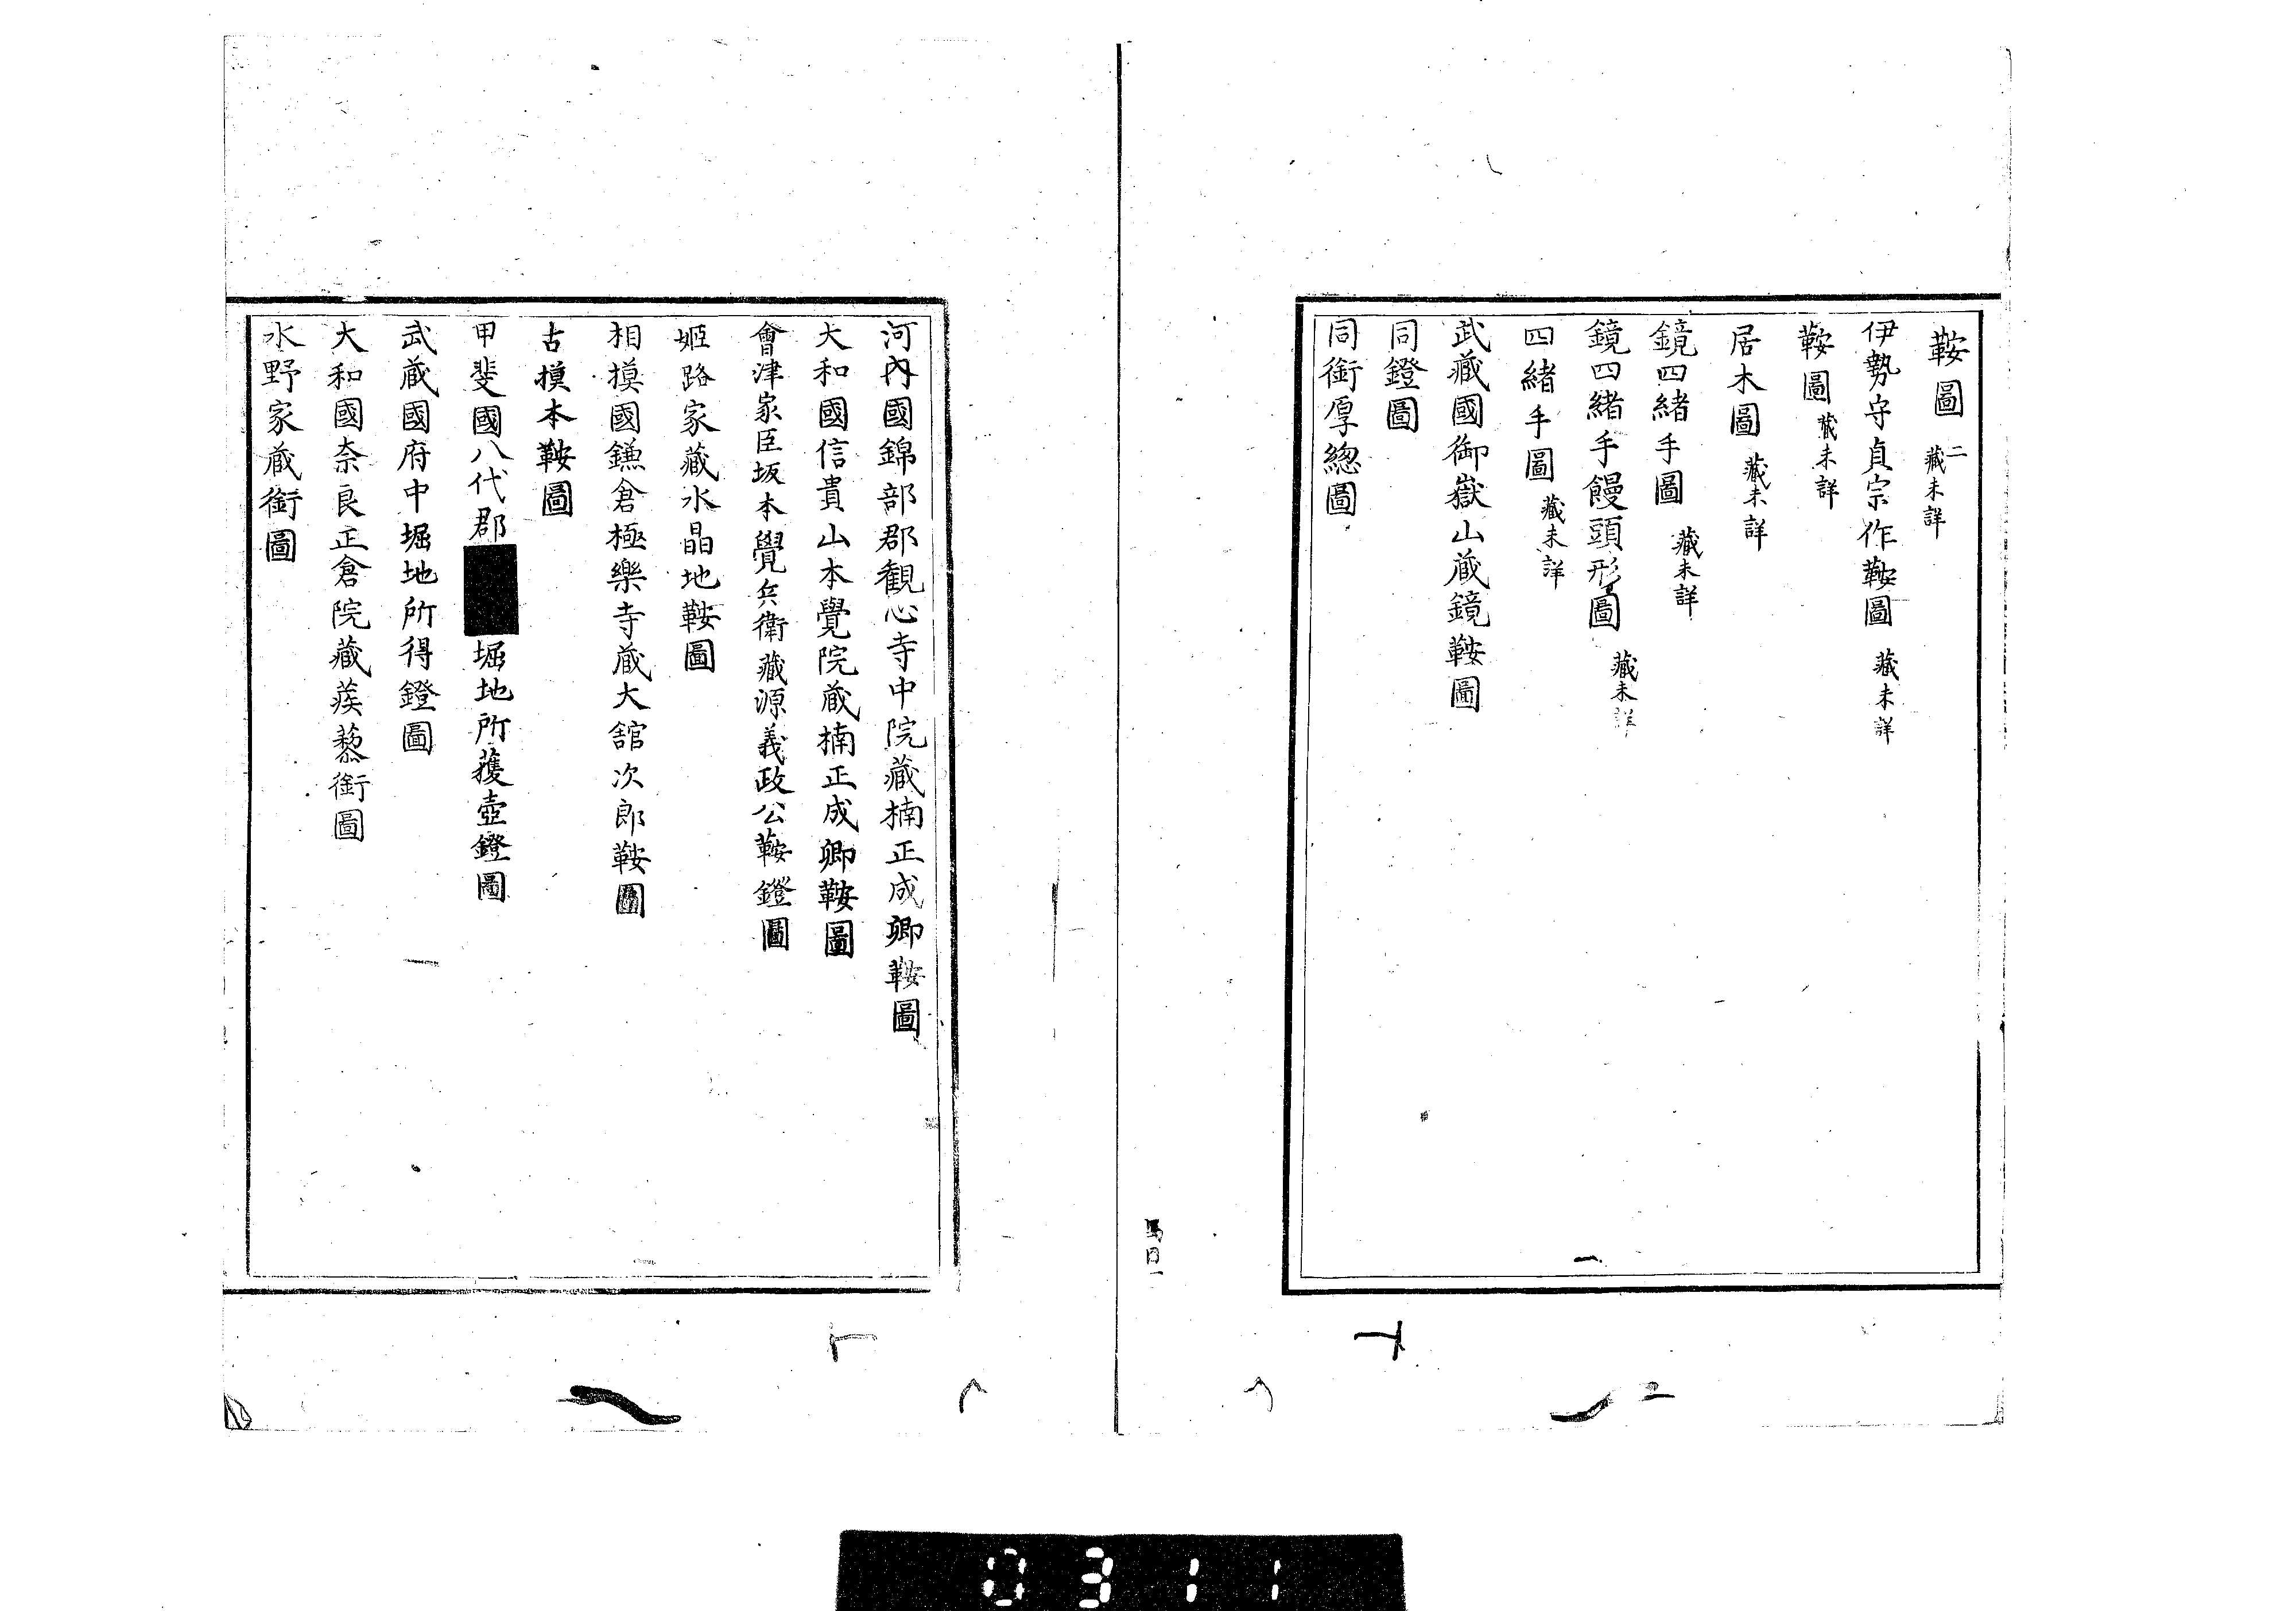 鞍圖 二藏未詳
伊勢守貞宗作鞍圖 藏未詳
鞍圖 藏未詳
居木圖 藏未詳
鏡四緒手圖 藏未詳
鏡四緒手饅頭形圖 藏未詳
四緒手圖 藏未詳
武藏國御嶽山藏鏡鞍圖
同鐙圖
同銜厚總圖
馬目一
河內國錦部郡観心寺中院藏楠正成卿鞍圖
大和國信貴山本覺院藏楠正成卿鞍圖
會津家臣坂本覺兵衛藏源義政公鞍鐙圖
姬路家藏水晶地鞍圖
相摸國鎌倉極樂寺藏大舘次郎鞍圖
古摸本鞍圖
甲斐國八代郡 堀地所獲壺鐙圖
武藏國府中堀地所得鐙圖
大和國奈良正倉院藏蒺藜銜圖
水野家藏銜圖
0311